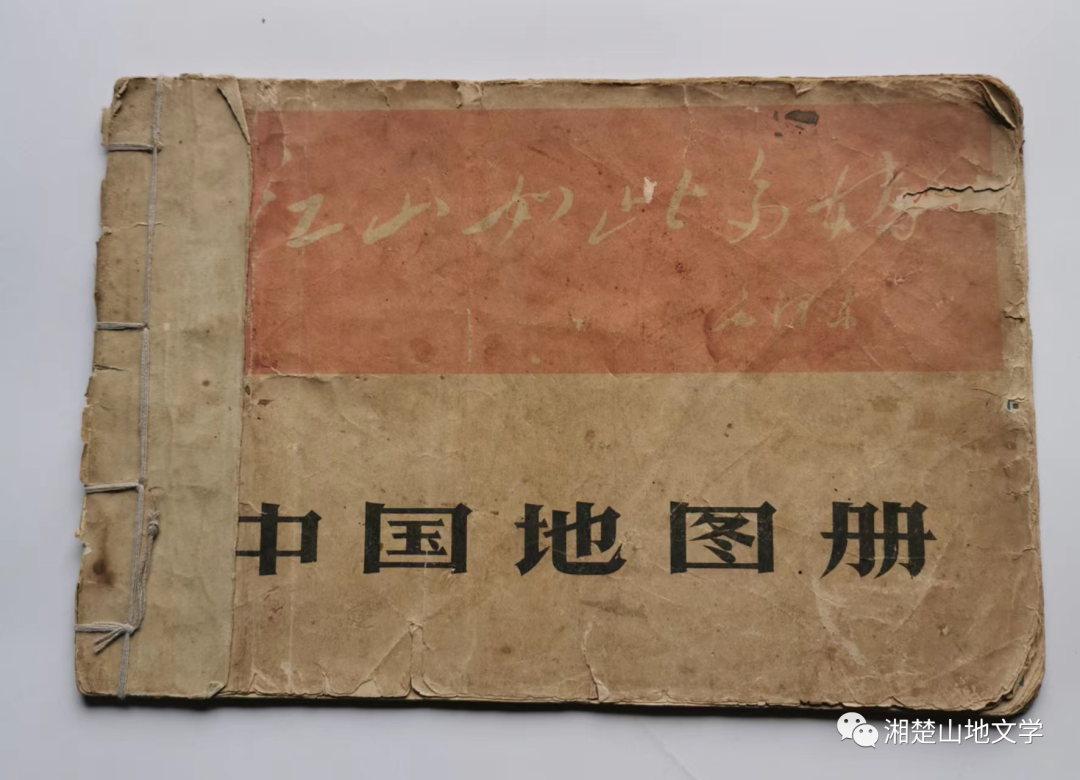 江山如此多娇
毛泽东
中国地图册
湘楚山地文学